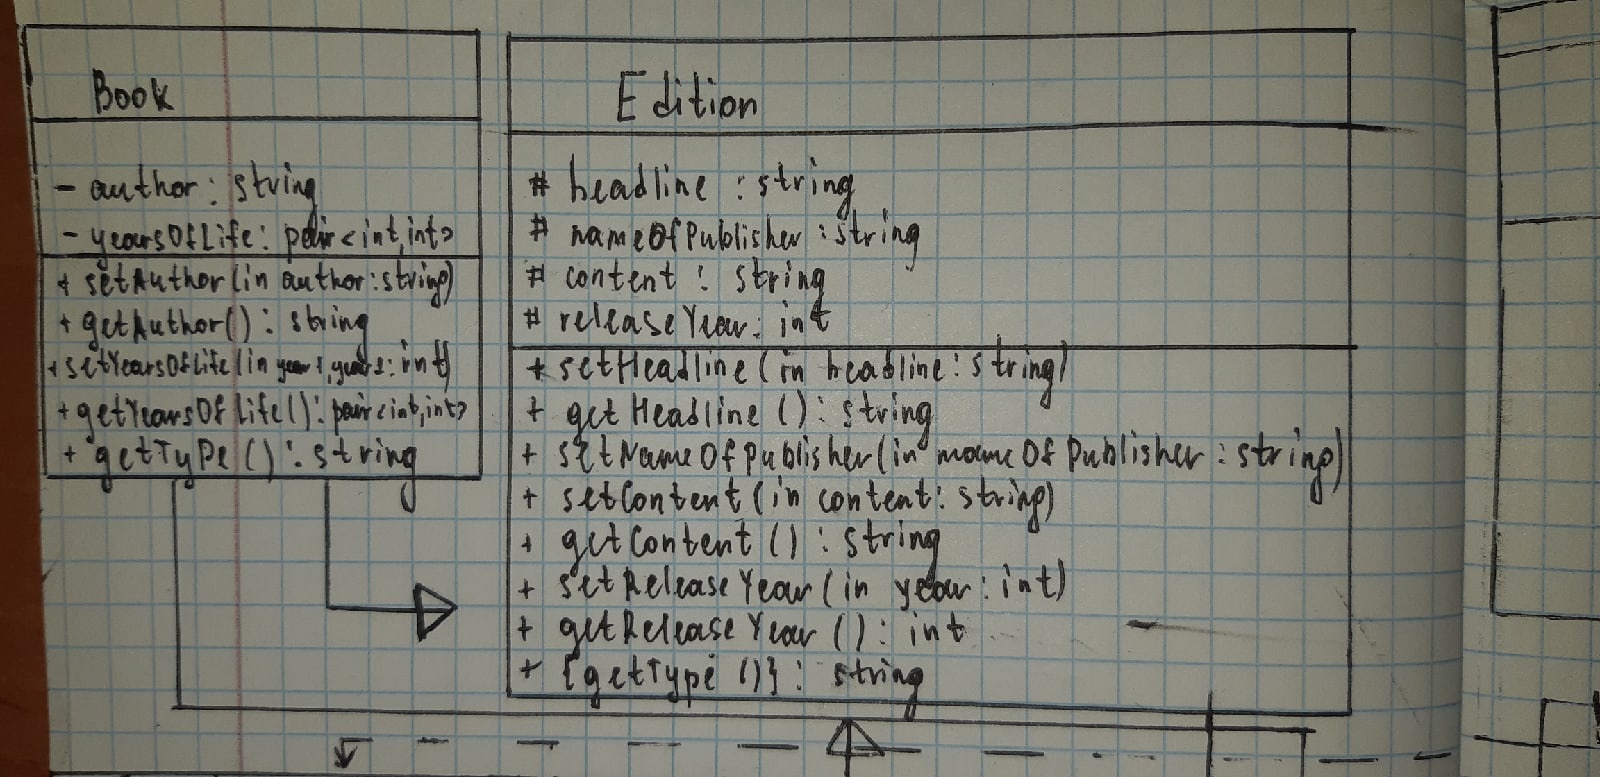 Book
- author: string
- yearsOfLife: pair<int,int>
+ setAuthor(in author:string)
+ getAuthor(): string
+ setYearsOfLife(in year1,year2:int)
+ getYearsOfLife(): pair<int,int>
+ getType(): string
Edition
# headline : string
# nameOfPublisher : string
# content : string
# releaseYear: int
+ setHeadline(in headline:string)
+ getHeadline(): string
+ setNameOfPublisher(in nameOfPublisher: string)
+ setContent(in content: string)
+ getContent(): string
+ setReleaseYear(in year: int)
+ getReleaseYear(): int
+ {getType()}: string